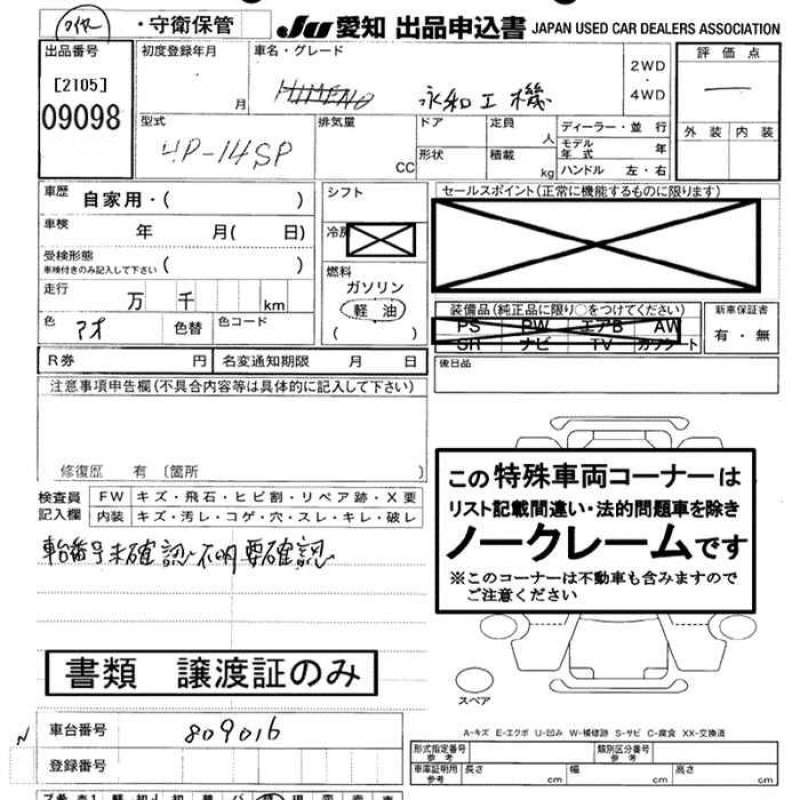 ・守衛保管
JU 愛知 出品申込書 JAPAN USED CAR DEALERS ASSOCIATION
出品番号
[2105]
09098
初度登録年月
月
車名・グレード
HIMENO 永和工機
2WD
・
4WD
評価点
―
外装 内装
型式
4P-14SP
排気量
CC
ドア
形状
定員
人
積載
kg
ディーラー・並行
モデル年式 年
ハンドル 左・右
車歴 自家用・( )
車検 年 月( 日)
受検形態
車検付きのみ記入して下さい ( )
走行 万 千 km
色 アオ 色替 色コード
シフト
燃料
ガソリン
軽油
( )
R券 円 名変通知期限 月 日
セールスポイント(正常に機能するものに限ります)
装備品(純正品に限り○をつけてください)
PS PW エアB AW
SR ナビ TV カワシート
新車保証書
有・無
後日品
注意事項申告欄(不具合内容等は具体的に記入して下さい)
修復歴 有 (箇所 )
検査員
記入欄
FW キズ・飛石・ヒビ割・リペア跡・X要
内装 キズ・汚レ・コゲ・穴・スレ・キレ・破レ
車台番号未確認 不明要確認
この特殊車両コーナーは
リスト記載間違い・法的問題車を除き
ノークレームです
※このコーナーは不動車も含みますので
ご注意ください
書類 譲渡証のみ
スペア
車台番号 809016
登録番号
A-キズ E-エクボ U-凹み W-補修跡 S-サビ C-腐食 XX-交換済
形式指定番号
参考
類別区分番号
参考
車庫証明用
参考
長さ cm 幅 cm 高さ cm